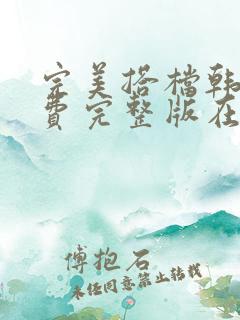 完美搭档韩
费完整版在
傅抱石
未经同意禁止转载